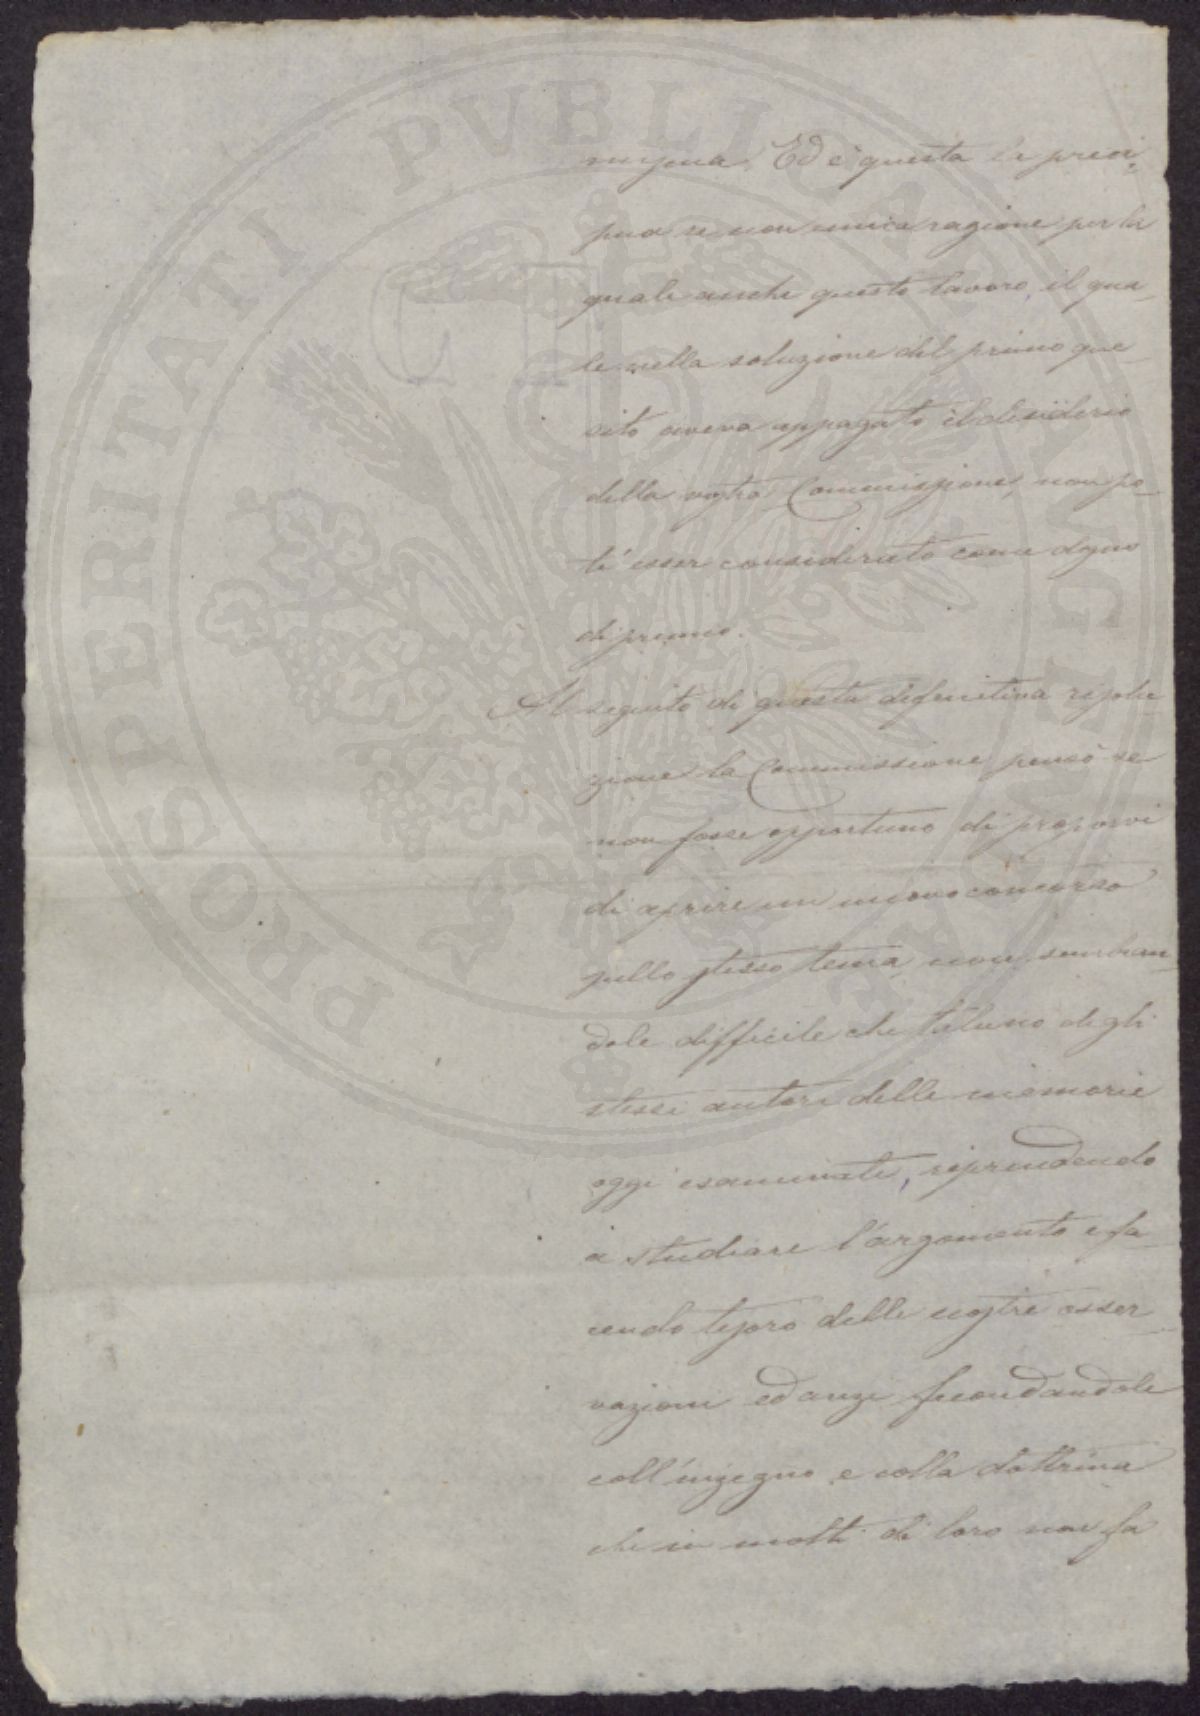 PROSPERITATI PVBLICAE AVGENDAE
Ed è questa la preci-
pua se non unica ragione per la
quale anche questo lavoro, il qua-
le nella soluzione del primo que-
sito aveva appagato il desiderio
della vostra Commissione, non po-
té esser considerato come degno
di premio.
Al seguito di questa definitiva risolu
zione la Commissione pensò se
non fosse opportuno di proporvi
di aprire un nuovo concorso
sullo stesso tema, non sembran-
dole difficile che taluno degli
stessi autori delle memorie
oggi esaminate, riprendendo
a studiare l'argomento e fa-
cendo tesoro delle nostre osser-
vazioni ed anzi fecondandole
coll'ingegno e colla dottrina
che in molti di loro non fa